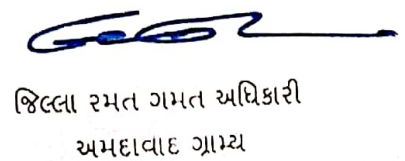 જિલ્લા રમત ગમત અધિકારી
અમદાવાદ ગ્રામ્ય